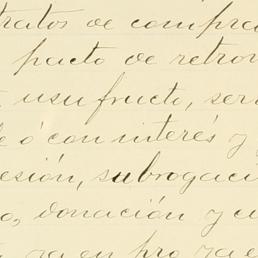 tratos de compra
pacto de retrov
usufructo, ser
e ó con interés y
esión, subrogaci
o, donación y a
ya en pro ya e